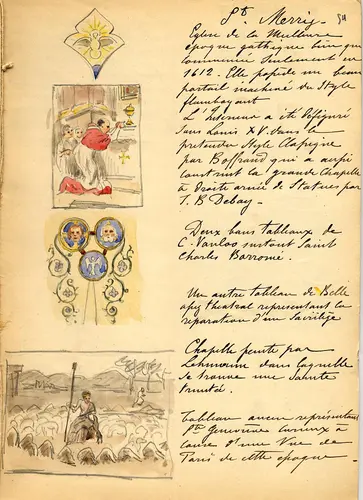 St. Merry. 54
Eglise de la Meilleure
époque gothique bien que
commencée seulement en
1612. Elle possède un beau
portail inachevé du Style
flamboyant
L'Interieur a été défiguré
sous Louis XV. dans le
pretendu Style Classique
par Boffrand qui a aussi
construit la grande Chapelle
à Droite ornée de Statues par
J. B. Debay -
Deux bons tableaux de
C. Vanloo surtout Saint
Charles Borromé.
Un autre tableau de Belle
assez theatral representant la
reparation d'un Sacrilège
Chapelle peinte par
Lehmann dans laquelle
se trouve une Sainte
Trinité.
Tableau ancien representant
Ste Geneviève curieux à
cause d'une Vue de
Paris de cette epoque